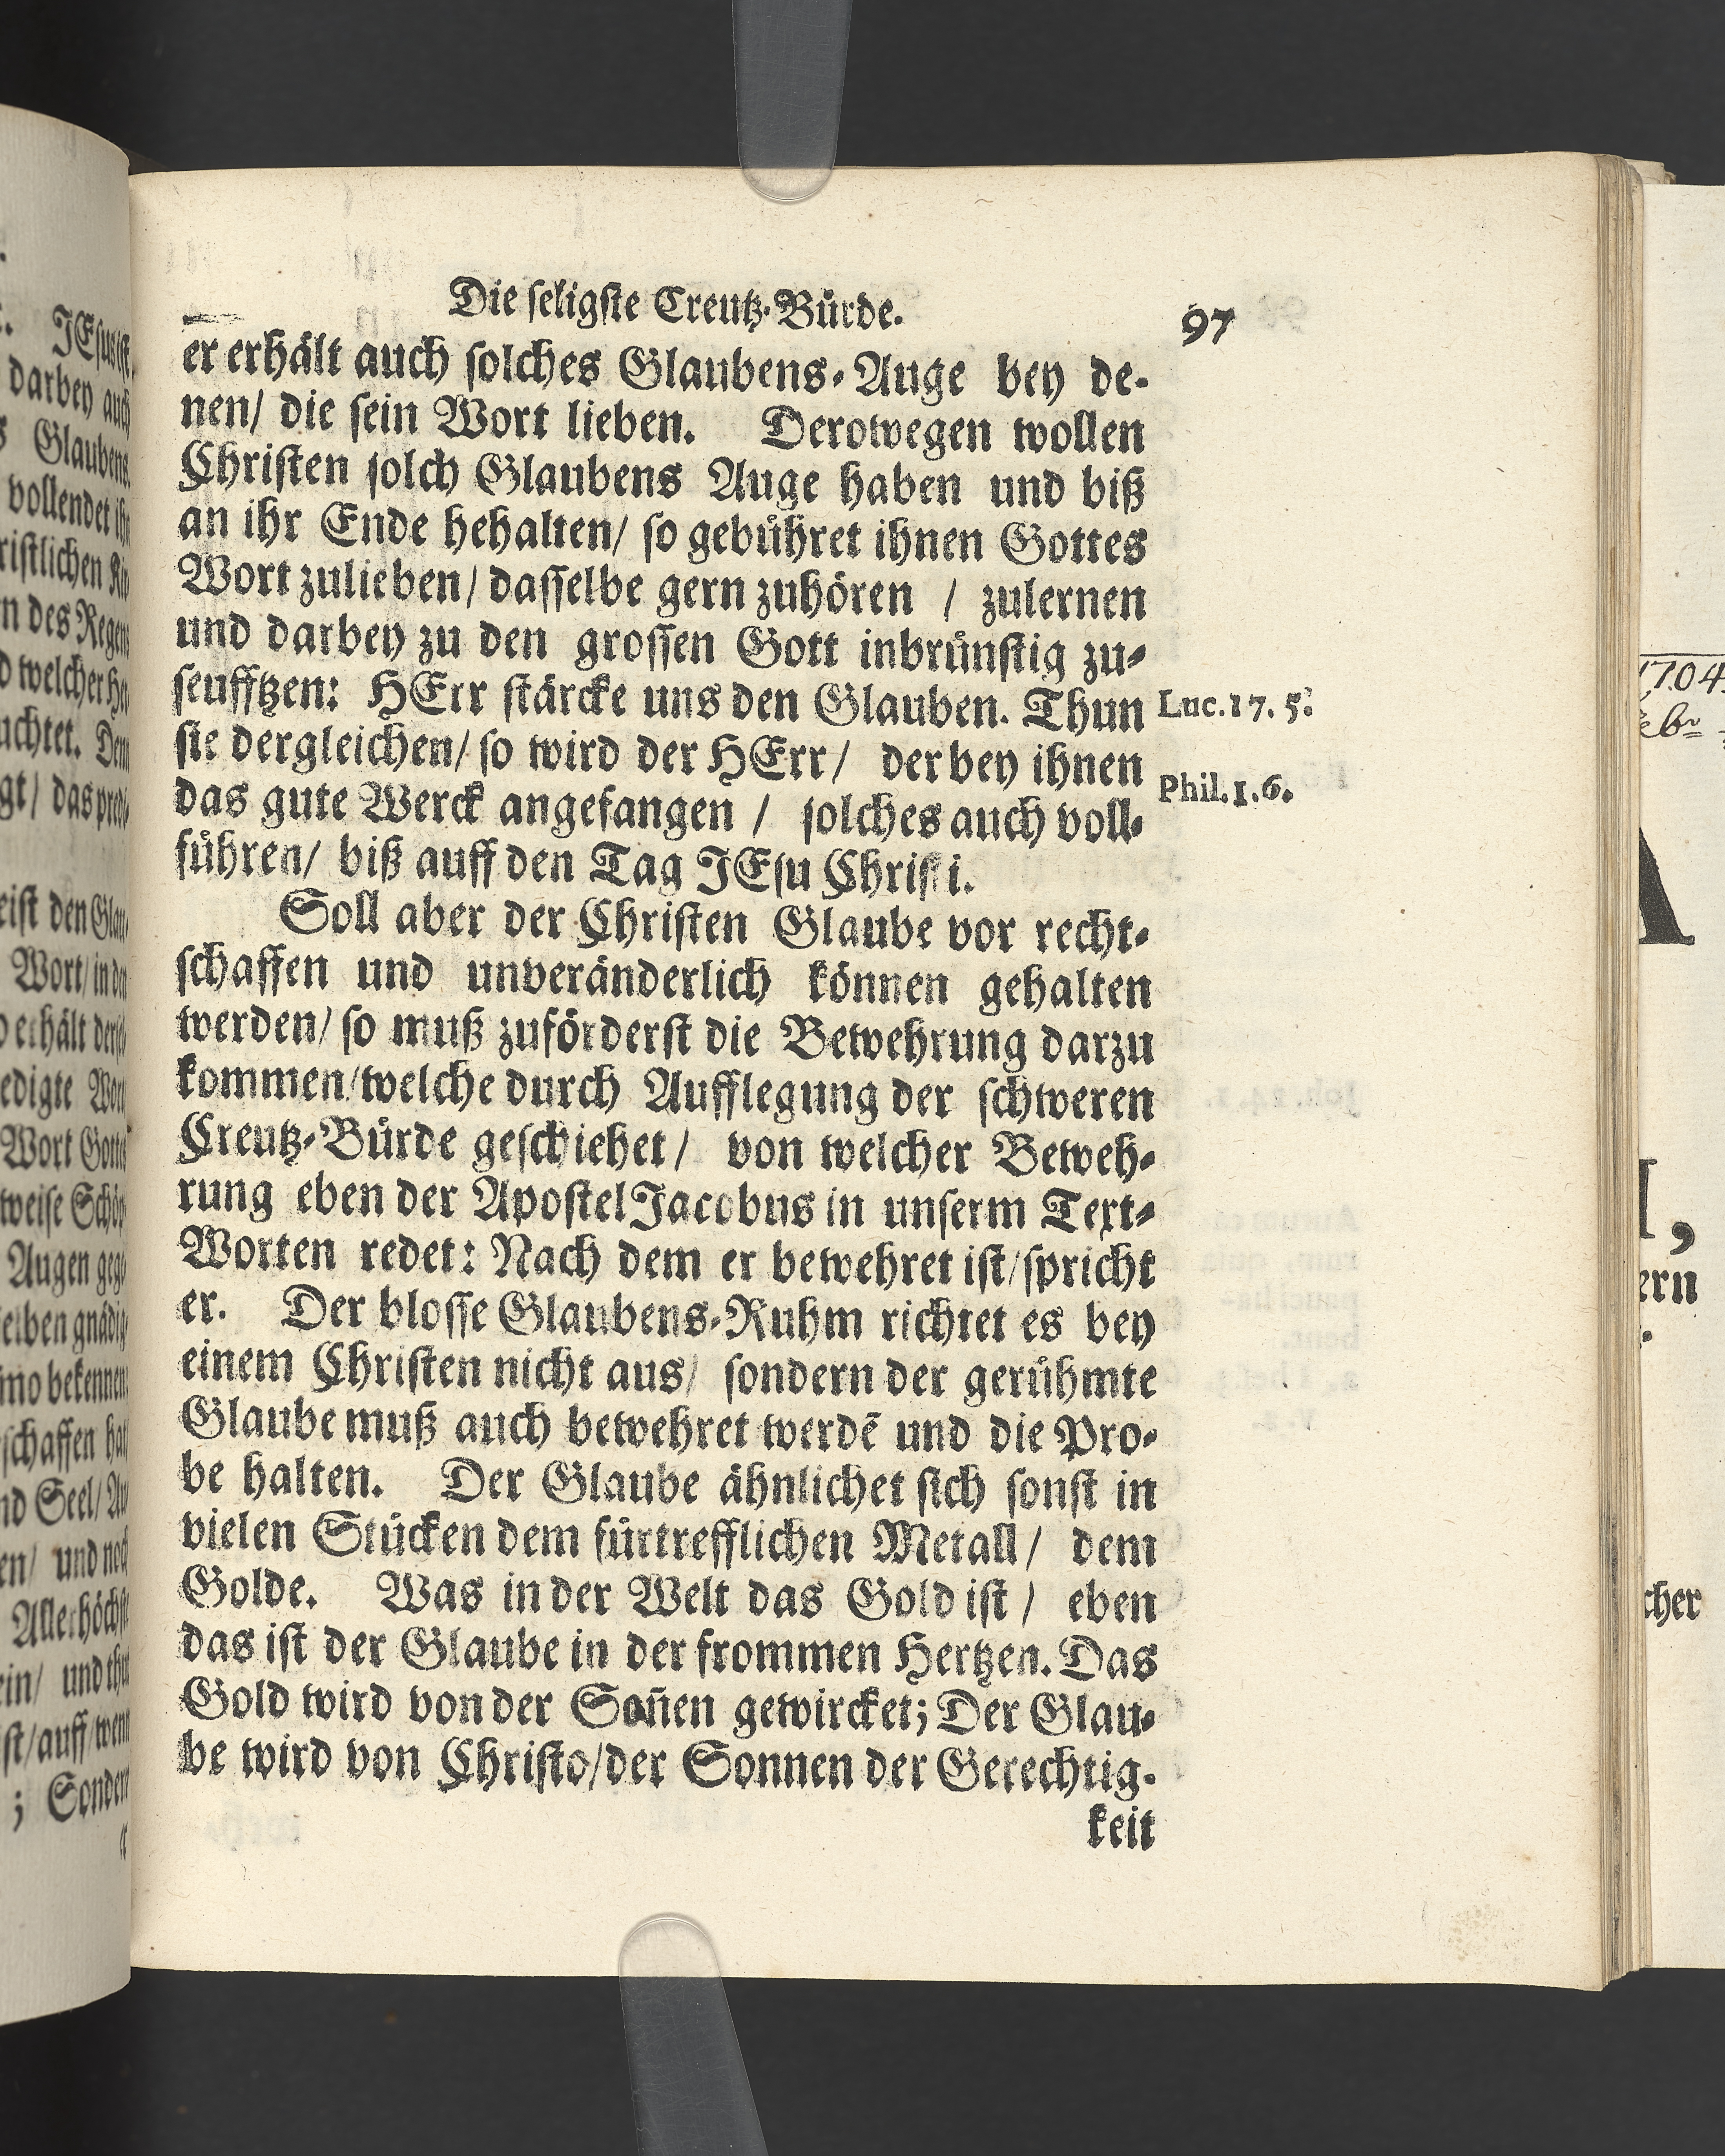 Die ſeligſte Creutz-Bürde. 97
er erhält auch ſolches Glaubens-Auge bey de-
nen/ die ſein Wort lieben. Derowegen wollen
Chriſten ſolch Glaubens Auge haben und biß
an ihr Ende hehalten/ ſo gebühret ihnen Gottes
Wort zulieben/ daſſelbe gern zuhören / zulernen
und darbey zu den groſſen Gott inbrünſtig zu-
ſeufftzen: HErr ſtärcke uns den Glauben. Thun
Luc. 17. 5.
ſie dergleichen/ ſo wird der HErr/ der bey ihnen
das gute Werck angefangen / ſolches auch voll-
Phil. 1. 6.
führen/ biß auff den Tag JEſu Chriſti.
Soll aber der Chriſten Glaube vor recht-
ſchaffen und unveränderlich können gehalten
werden/ ſo muß zuförderſt die Bewehrung darzu
kommen/ welche durch Aufflegung der ſchweren
Creutz-Bürde geſchiehet/ von welcher Beweh-
rung eben der Apoſtel Jacobus in unſerm Text-
Worten redet: Nach dem er bewehret iſt/ ſpricht
er. Der bloſſe Glaubens-Ruhm richtet es bey
einem Chriſten nicht aus/ ſondern der gerühmte
Glaube muß auch bewehret werdē und die Pro-
be halten. Der Glaube ähnlichet ſich ſonſt in
vielen Stücken dem fürtrefflichen Metall/ dem
Golde. Was in der Welt das Gold iſt/ eben
das iſt der Glaube in der frommen Hertzen. Das
Gold wird von der Soñen gewircket; Der Glau-
be wird von Chriſto/ der Sonnen der Gerechtig-
keit